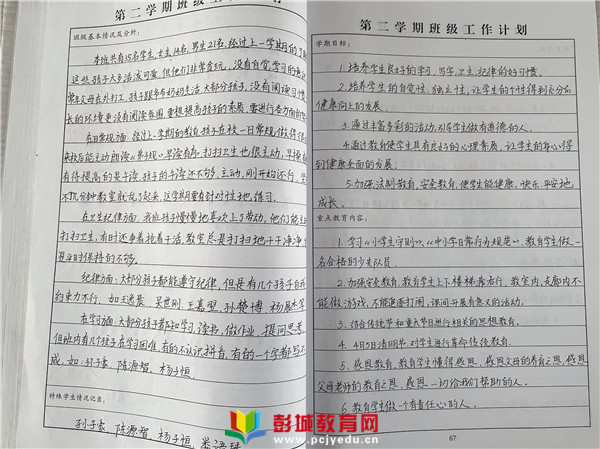 第二学期班级工作计划
班级基本情况及分析：
本班共有35名学生，女生14名，男生21名，经过上一学期的了解
这些孩子大多活泼可爱，但他们非常贪玩，没有自觉学习的
常年父母在外打工，孩子跟爷爷奶奶生活，大部分孩子，没有阅读习惯
长的环境更没有阅读氛围，要想提高孩子的素质，要进行各方面的
在日常规方面，经过上一学期的教育，孩子在校一日常规做得很
来校后能主动朗读《养规》早读有序，打扫卫生也很主动，
有待提高的是午读，孩子的午读还不够主动，刚开始还行，
不抓，分钟教室就乱了起来，这学期要有针对性地练习。
在卫生纪律方面，我班孩子慢慢地喜欢上了劳动，他们能主
打扫卫生，有时还争着抢着干活，教室总是打扫地干干净净
是平时保持的不够。
纪律方面：大部分孩子都能遵守纪律，但是有几个孩子自
约束力不行，如王
在学习方面：大部分孩子都知学习，读书，做作业，提问思考
但班内有几个孩子在学习困难，有的不认识拼音，有的一个字都写不
成，如：孙子豪、陈源智、杨子恒。
特殊学生情况记录：
孙子豪、陈源智、杨子恒、
第二学期班级工作计划
学期目标：
1.培养学生良好的学习、写字、卫生、纪律的好习惯。
2.培养学生的自觉性，独立性，让学生的个性得到充分和
健康向上的发展。
3.通过丰富多彩的活动，引导学生做有道德的人。
4.通过教育使学生具有良好的心理素质，让学生的身心得
到健康全面的发展。
5.加强法制教育，安全教育，使学生能健康、快乐、平安地
成长。
重点教育内容：
1.学习《小学生守则》、《中小学日常行为规范》，教育学生做一
名合格的少先队员。
2.加强安全教育，教育学生上下楼梯靠右行，教室内，走廊内不
能做游戏，不能追逐打闹，课间开展有意义的活动。
3.结合传统节和重大节日进行相关的思想教育。
4.4月5日清明节，对学生进行革命传统教育。
5.感恩教育，教育学生懂得感恩，感恩父母的养育之恩，感恩
父母老师的教育之恩，感恩一切给我们帮助的人。
6.教育学生做一个有责任心的人。
67
彭城教育网
www.pcjyedu.cn